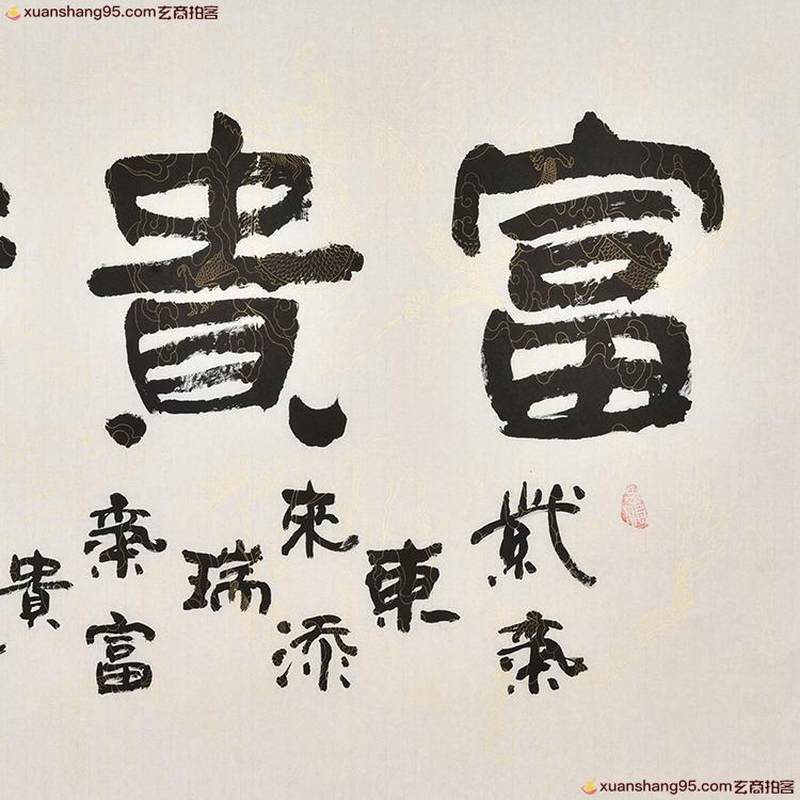 xuanshang95.com玄商拍客
富貴
紫氣
東
來添
瑞
氣富
貴
xuanshang95.com玄商拍客